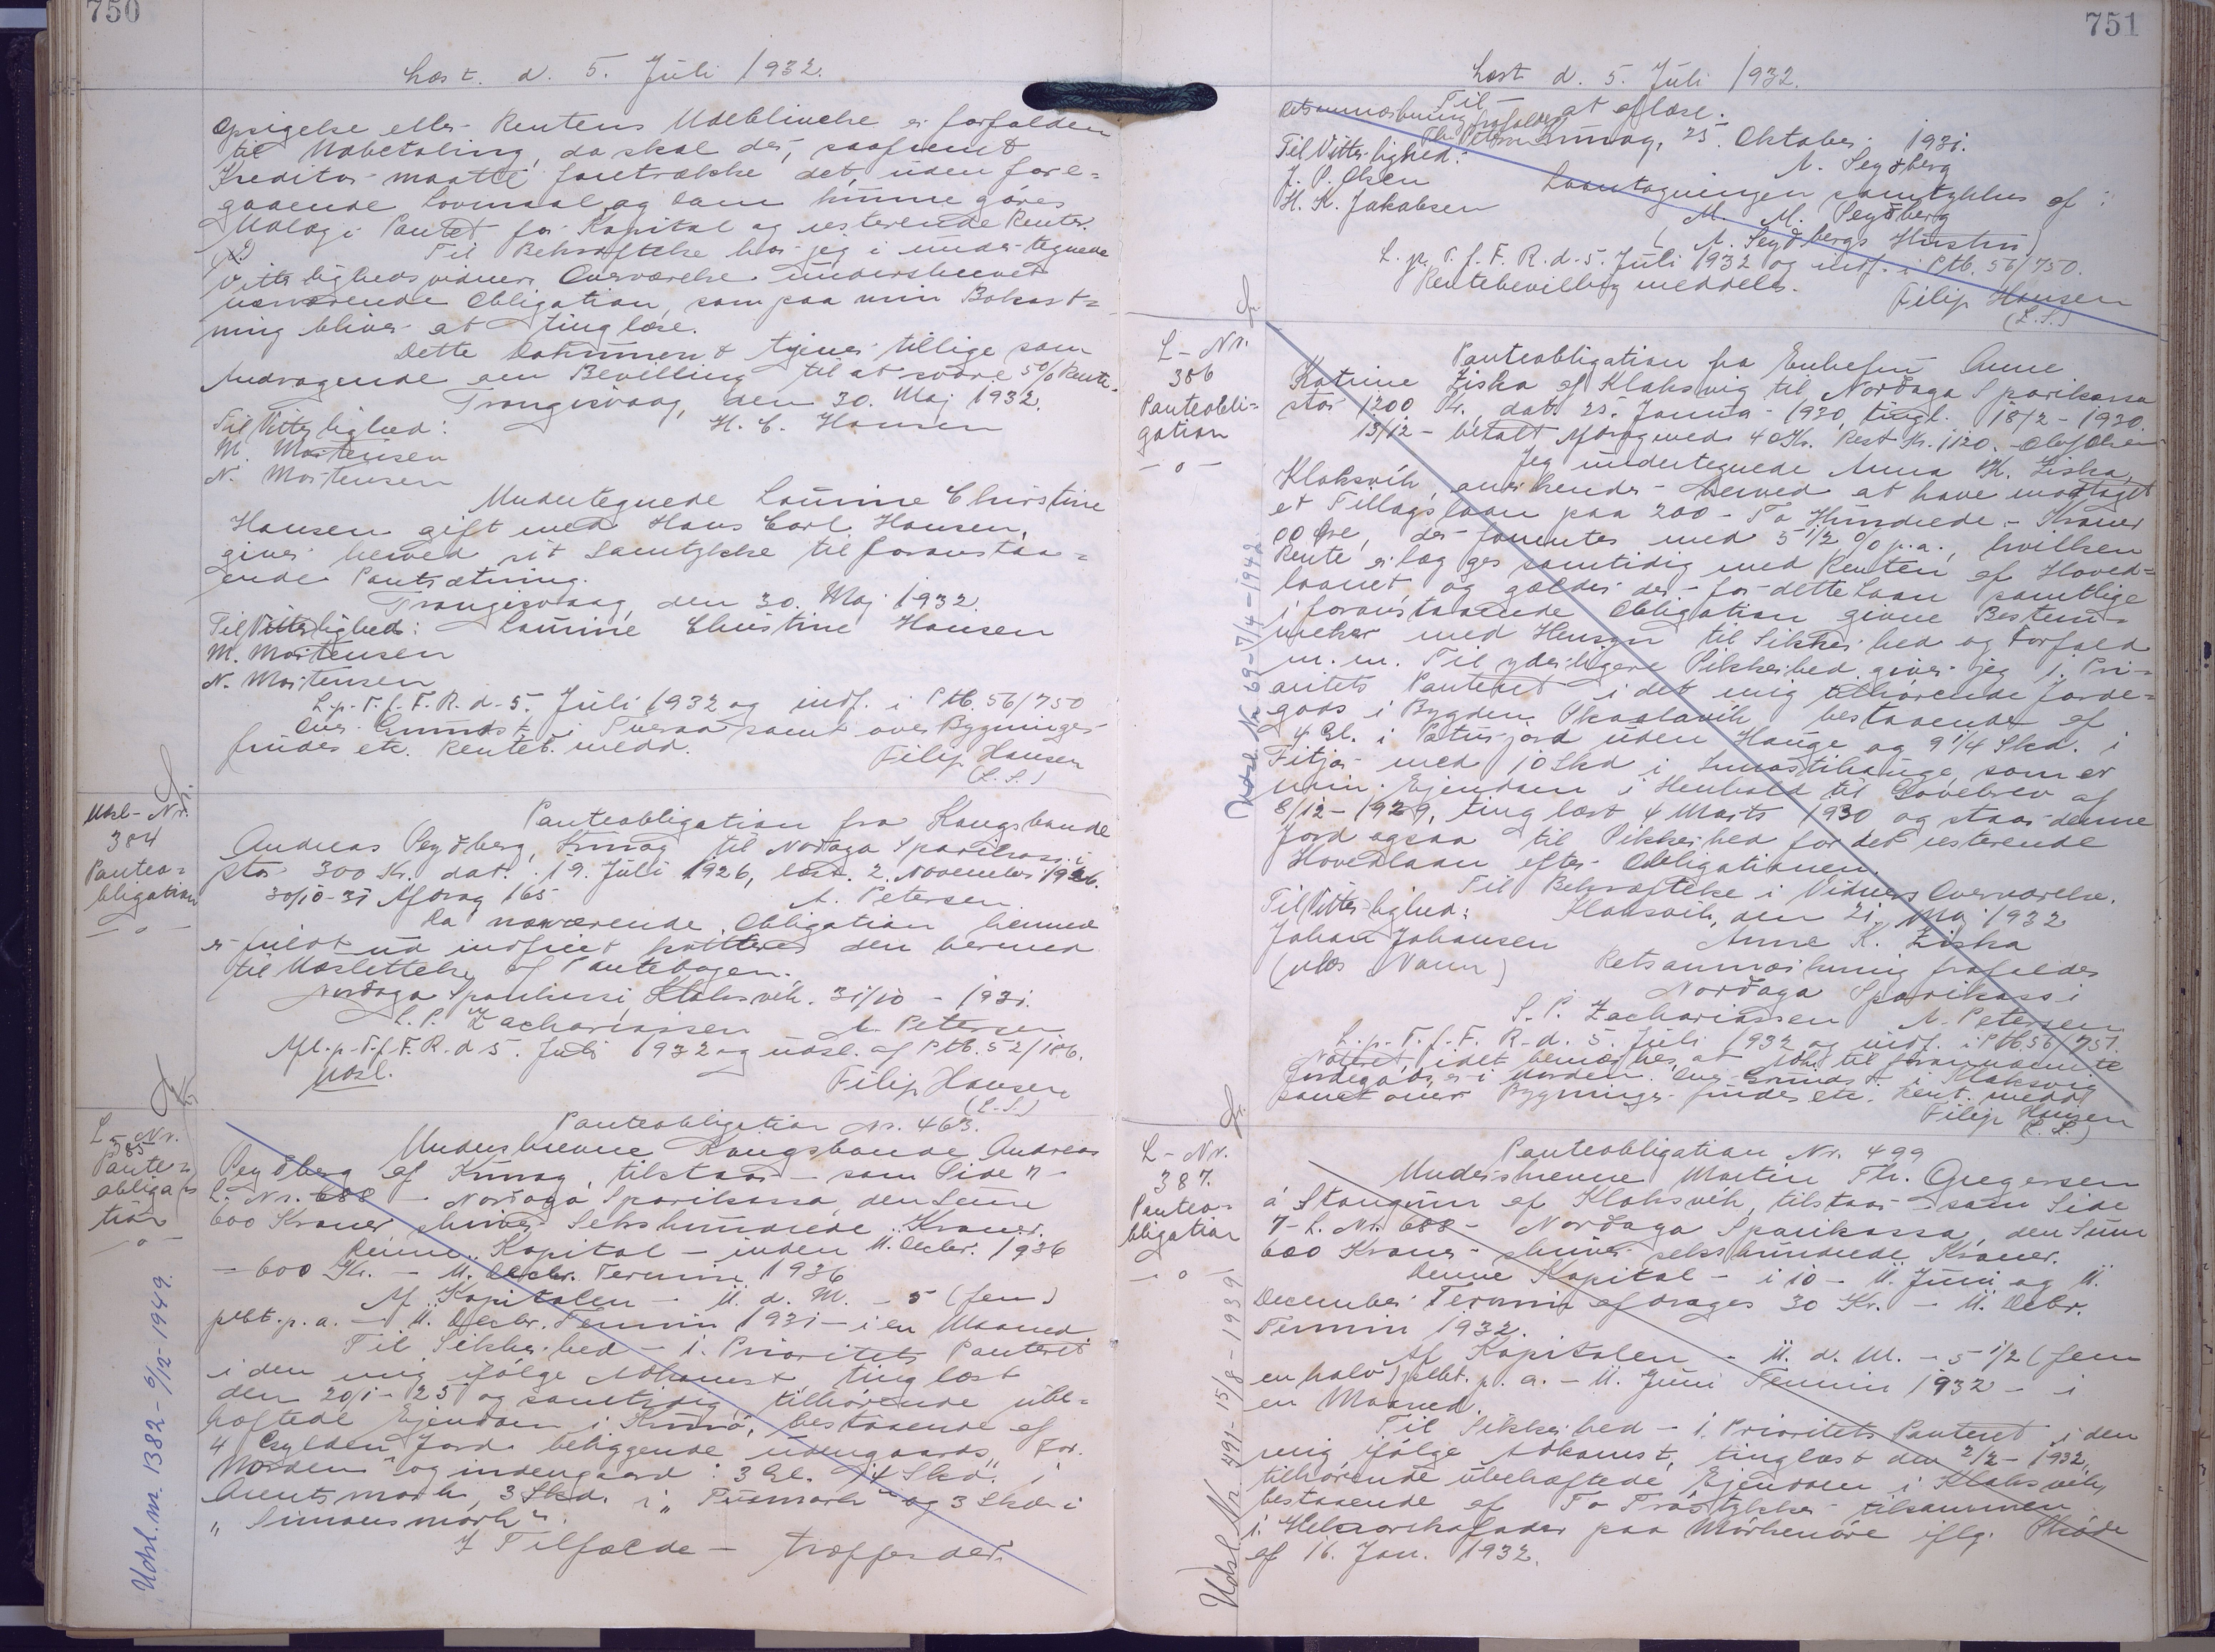 750
Læst. d. 5. Juli 1932.
Opsigelse eller Rentens Udeblivelse er forfalden
til Udbetaling, da skal der, saafremt
Kreditor maatte foretrække det, uden fore=
gaaende Lovmaal og Dom kunne göres
Udlæg i Pantet for Kapital og resterende Renter.
Til Bekræftelse har jeg i undertegnede
Vitterlighedsvidners Overværelse underskrevet
nærværende Obligation, som paa min Bekost=
ning bliver at tinglæse.
Dette Dokument tjener tillige som
Andragende om Bevilling til at svare 5% Rente.
Trangisvaag, den 30. Maj 1932.
Til Vitterlighed: H. C. Hansen
M. Mortensen
N. Mortensen
Undertegnede Laurine Christine
Hansen gift med Hans Carl Hansen,
giver herved sit Samtykke til foranstaa=
ende Pantsætning.
Trangisvaag, den 30. Maj 1932.
Til Vitterlighed: Laurine Christine Hansen
M. Mortensen
N. Mortensen
L. p. T. f. F. R. d. 5. Juli 1932 og indf. i Ptb. 56/750
Over Grundst. i Tveraa samt over Bygninger
findes etc. Renteb. medd.
Filip Hansen
(L.S.)
Udsl- Nr.
384
Panteo=
bligation
— o —
Panteobligation fra Kongsbonde
Andreas Seyðberg, Kunoy til Norðoya Sparikassi
stor 300 Kr. dat. 19. Juli 1926, læst. 2. November 1926.
30/10-31 Afdrag 165 A. Petersen
Da nærværende Obligation hermed
er fuldt ud indfriet kvitteres den hermed
til Udslettelse af Pantebogen.
Norðoya Sparikassi, Klaksvík. 31/10 - 1931.
S. P. Zachariassen A. Petersen
Afl. p. T. f. F. R. d 5. Juli 1932 og udsl. af Ptb. 52/186.
Udsl.
Filip Hansen
(L.S.)
L - Nr.
385
Pante=
obliga
tion
— o —
Panteobligation Nr. 463.
Underskrevne Kongsbonde Andreas
Seyðberg af Kunoy, tilstaar - som Side 7 -
L. Nr. 688 - Norðoya Sparikassa, den Sum
600 Kroner, skriver Sekshundrede Kroner.
Denne Kapital - inden 11. Decbr. 1936
= 600 Kr. - 11. Decbr. Termin 1936
Af Kapitalen - 11. d. M. - 5 (fem)
pCt. p. a. - 11. Decbr. Termin 1931 - i en Maaned.
Til Sikkerhed - 1. Prioritets Panteret
i den mig ifölge Adkomst tinglæst
den 20/1 - 25 og samtidig tilhörende ube=
hæftede Ejendom i Kunö, bestaaende af
4 Gylden Jord beliggende udengaards „For.
Norden" og indengaard: 3 Gl. 14 Skd. i
Arentsmork, 3 Skd. i „ Pusmork" og 3 Skd. i
„ Simonsmork".
I Tilfælde — træffes der.
Udsl. nr. 1382 - 9/12 - 1949.
751
Læst d. 5. Juli 1932.
Til — at aflæse.
Retsanmærkning frafaldes
Kunoy, 25. Oktober 1931.
Til Vitterlighed: A. Seyðberg
J. P. Olsen Laantagningen samtykkes af:
H. K. Jakobsen M. M. Seyðberg
( A. Seyðbergs Hustru)
L. p. T. f. F. R. d. 5. Juli 1932 og indf. i Ptb. 56/750.
Rentebevilling meddeles.
Filip Hansen
(L.S.)
L - Nr.
386
Panteobli=
gation
— o —
Panteobligation fra Enkefru Anne
Katrine Ziska af Klaksvig til Norðoya Sparikassa
stor 1200 Kr., dat. 25. Januar 1920, tingl. 18/2 - 1920.
13/12 - betalt Afdrag med 40 Kr. Rest Kr. 1120.
Jeg undertegnede Anna K. Ziska,
Klaksvík, anerkender herved at have modtaget
et Tillagslaan paa 200 - To Hundrede - Kroner
00 Öre, der forrentes med 5 1/2 % p. a., hvilken
Rente erlægges samtidig med Renten af Hoved=
laanet og gælder der for dette Laan samtlige
i foranstaaende Obligation givne Bestem=
melser med Hensyn til Sikkerhed og Forfald
m. m. Til yderligere Sikkerhed giver jeg 1. Pri=
oritets Panteret i det mig tilhörende Jorde=
gods i Bygden Skaalavík, bestaaende af
4 Gl. i Pæturjord uden Hauge og 9 1/4 Skd. i
Fitjar med 10 Skd i Smostihauge, som er
min Ejendom i Henhold til Gavebrev af
8/12 - 1929, ting læst 4 Marts 1930 og staar denne
Jord ogsaa til Sikkerhed for det resterende
Hovedlaan efter Obligationen.
Til Bekræftelse i Vidners Overværelse.
Til Vitterlighed: Klaksvík, den 21. Maj 1932
Johan Johansen Anne K. Ziska
(ulæs Navn) Retsanmærkning frafaldes
Norðoya Sparikassi
S. P. Zachariassen A. Petersen
L. p. T. f. F. R. d. 5. Juli 1932 og indf. i Ptb 56/751.
Noteret, idet bemærkes, at Adk. til forannævnte
Jordegods er i Orden. Over Grundst. i Klaksvig
samt over Bygninger findes etc. Rent. medd.
Filip Hansen
(L. S.)
Udsl. Nr. 69 - 7/4 - 1942.
L - Nr.
387.
Panteo=
bligation
— o —
Panteobligation Nr. 499
Underskrevne Martin Fr. Gregersen
á Stongunn af Klaksvík, tilstaar - som Side
7 - L. Nr. 688 - Norðoya Sparikassa, den Sum
600 Kroner - skriver sekshundrede Kroner.
Denne Kapital - i 10 - 11. Juni og 11.
December Termin afdrages 30 Kr. - 11. Decbr.
Termin 1932.
Af Kapitalen - 11. d. M. - 5 1/2 (fem
en halv) pCt. p. a. - 11. Juni Termin 1932 - i
en Maaned.
Til Sikkerhed - 1. Prioritets Panteret i den
mig ifölge Adkomst, tinglæst den 2/2 - 1932,
tilhörende ubehæftede Ejendom i Klaksvík,
bestaaende af To Trøstykker tilsammen
paa Mörkenöre iflg. Sköde
af 16. Jan. 1932.
Udsl. Nr. 491 - 15/8 - 1939